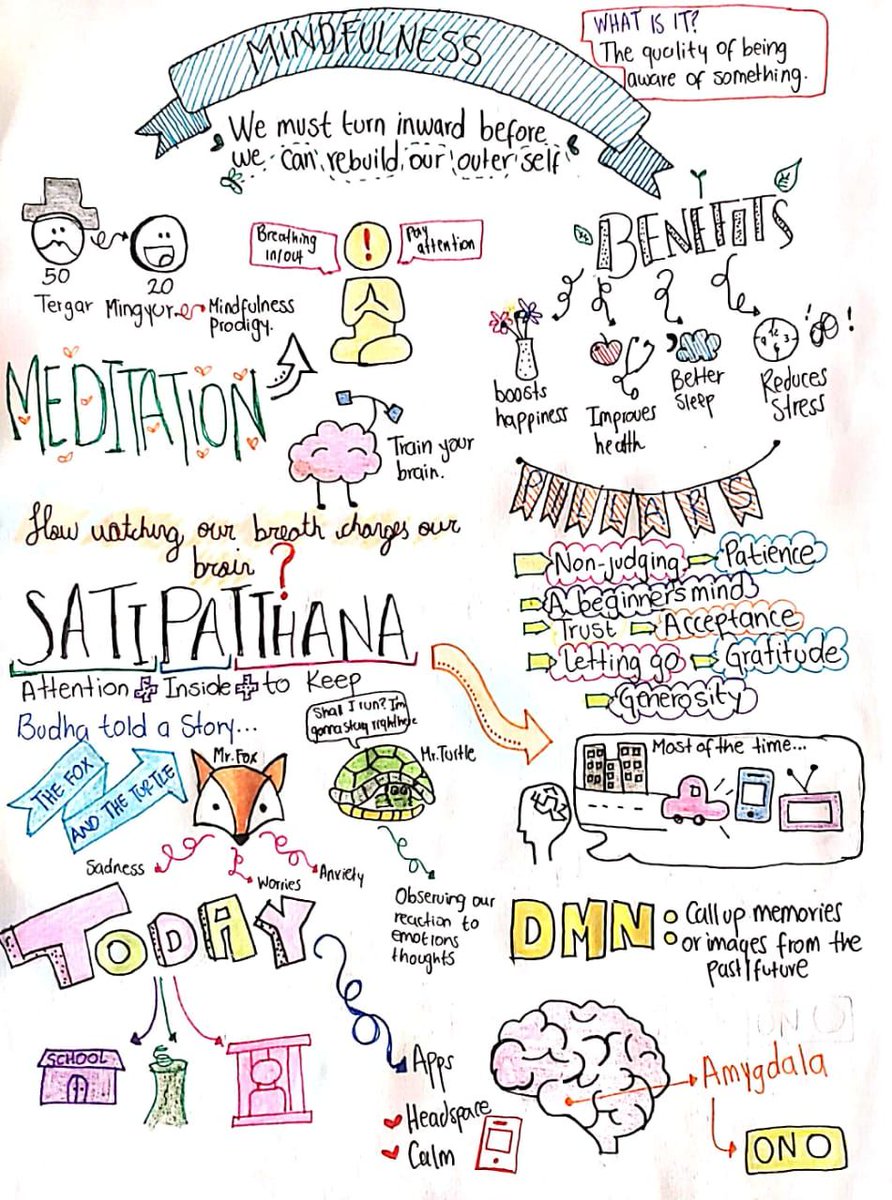 MINDFULNESS
WHAT IS IT?
The quality of being
aware of something.
We must turn inward before
we can rebuild our outer self
50
20
Tergar Mingyur
Mindfulness
Prodigy.
Breathing
in/out
Pay
attention
MEDITATION
Train your
brain.
BENEFITS
boosts
happiness
Improves
health
Better
Sleep
Reduces
Stress
How watching our breath changes our
brain?
PILLARS
Non-judging
Patience
A beginners mind
Trust
Acceptance
Letting go
Gratitude
Generosity
SATIPATTHANA
Attention + Inside + to Keep
Budha told a Story...
THE FOX
AND THE TURTLE
Mr. Fox
Shall I run? I'm
gonna stay right here
Mr. Turtle
Sadness
Worries
Anxiety
Observing our
reaction to
emotions
thoughts
Most of the time...
DMN:
Call up memories
or images from the
past/future
TODAY
SCHOOL
Apps
Headspace
Calm
Amygdala
ON O